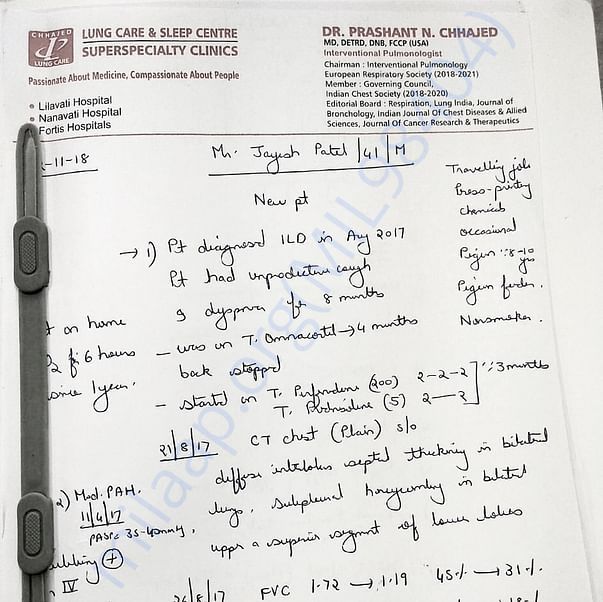 CHHAJED
LUNG CARE
LUNG CARE & SLEEP CENTRE
SUPERSPECIALTY CLINICS
Passionate About Medicine, Compassionate About People
• Lilavati Hospital
• Nanavati Hospital
• Fortis Hospitals
DR. PRASHANT N. CHHAJED
MD, DETRD, DNB, FCCP (USA)
Interventional Pulmonologist
Chairman : Interventional Pulmonology
European Respiratory Society (2018-2021)
Member : Governing Council,
Indian Chest Society (2018-2020)
Editorial Board : Respiration, Lung India, Journal of
Bronchology, Indian Journal Of Chest Diseases & Allied
Sciences, Journal Of Cancer Research & Therapeutics
-11-18
Mr. Jayesh Patel / 41 / M
New pt
Travelling job
press-printing
chemicals
occasional
Pigeon 8-10 yrs
Pigeon feeder.
Nonsmoker.
→ 1) Pt diagnosed ILD in Aug 2017
Pt had unproductive cough
& dyspnea for 8 months
- was on T. Omnacortil → 4 months
back stopped
on home
6 hours
since 1 year.
- started on T. (200) 2-2-2
T. (5) 2—2
3 months
21/8/17 CT chest (Plain) s/o
diffuse interlobular septal thickening in bilateral
lungs, subpleural honeycombing in bilateral
upper & superior segment of lower lobes
2) Mod. PAH.
11/4/17
PASP 35-40mmHg,
clubbing (+)
IV
/8/17 FVC 1.72 → 1.19 45% → 31%
milaap.org(MIL98404)